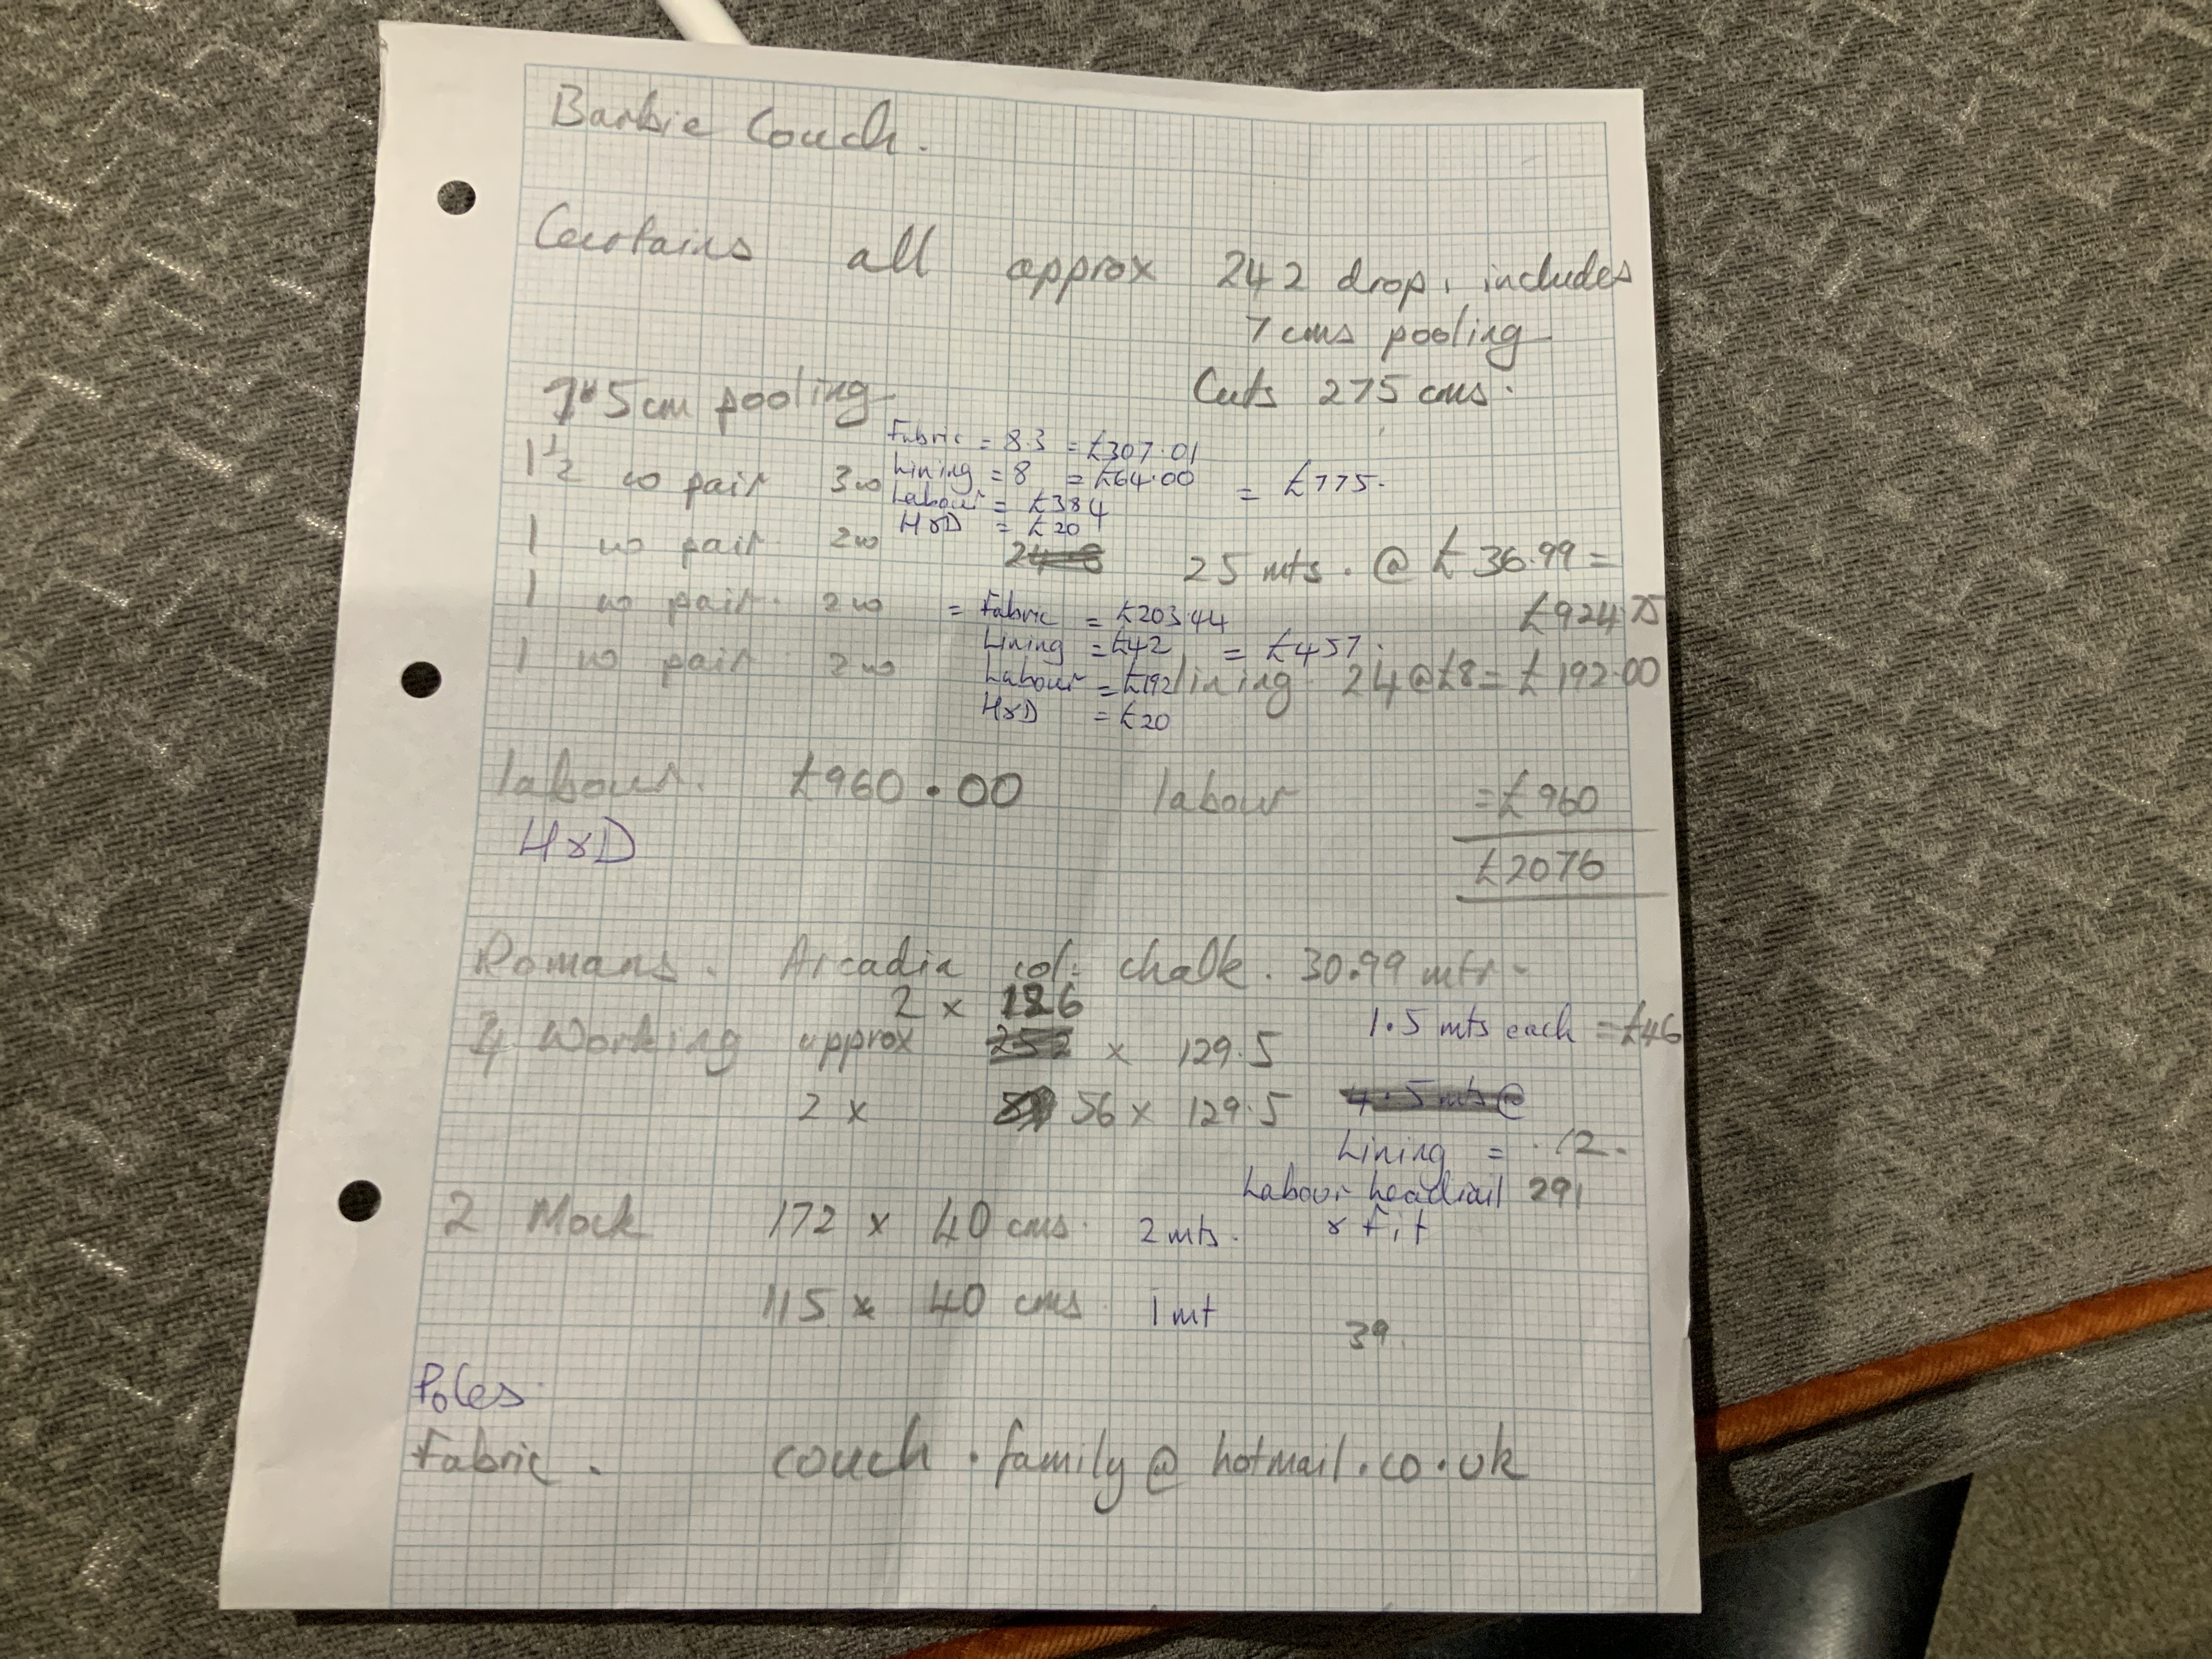 Barbie Couch.
Curtains all approx 242 drop, includes
7 cms pooling
7.5cm pooling
Cuts 275 cms.
Fabric = 8.3 = £307.01
Lining = 8 = £64.00 = £775.
1½ w pair 3w
Labour = £384
H&D = £20
1 w pair 2w
25 mts. @ £36.99 =
£924.75
1 w pair 2w = Fabric = £203.44
Lining = £42 = £457.
1 w pair 2w
Labour = £192
lining 24 @ £8 = £192.00
H&D = £20
labour. £960.00 labour = £960
H&D
£2076
Romans. Arcadia col. chalk. 30.99 mtr.
2 x 126
4 Working approx 252 x 129.5
1.5 mts each = £46
2 x 56 x 129.5
4.5 mts @
Lining = 12.
Labour headrail 291
& Fit
2 Mock 172 x 40 cms. 2 mts.
115 x 40 cms. 1 mt
39.
Poles
Fabric. couch.family@hotmail.co.uk